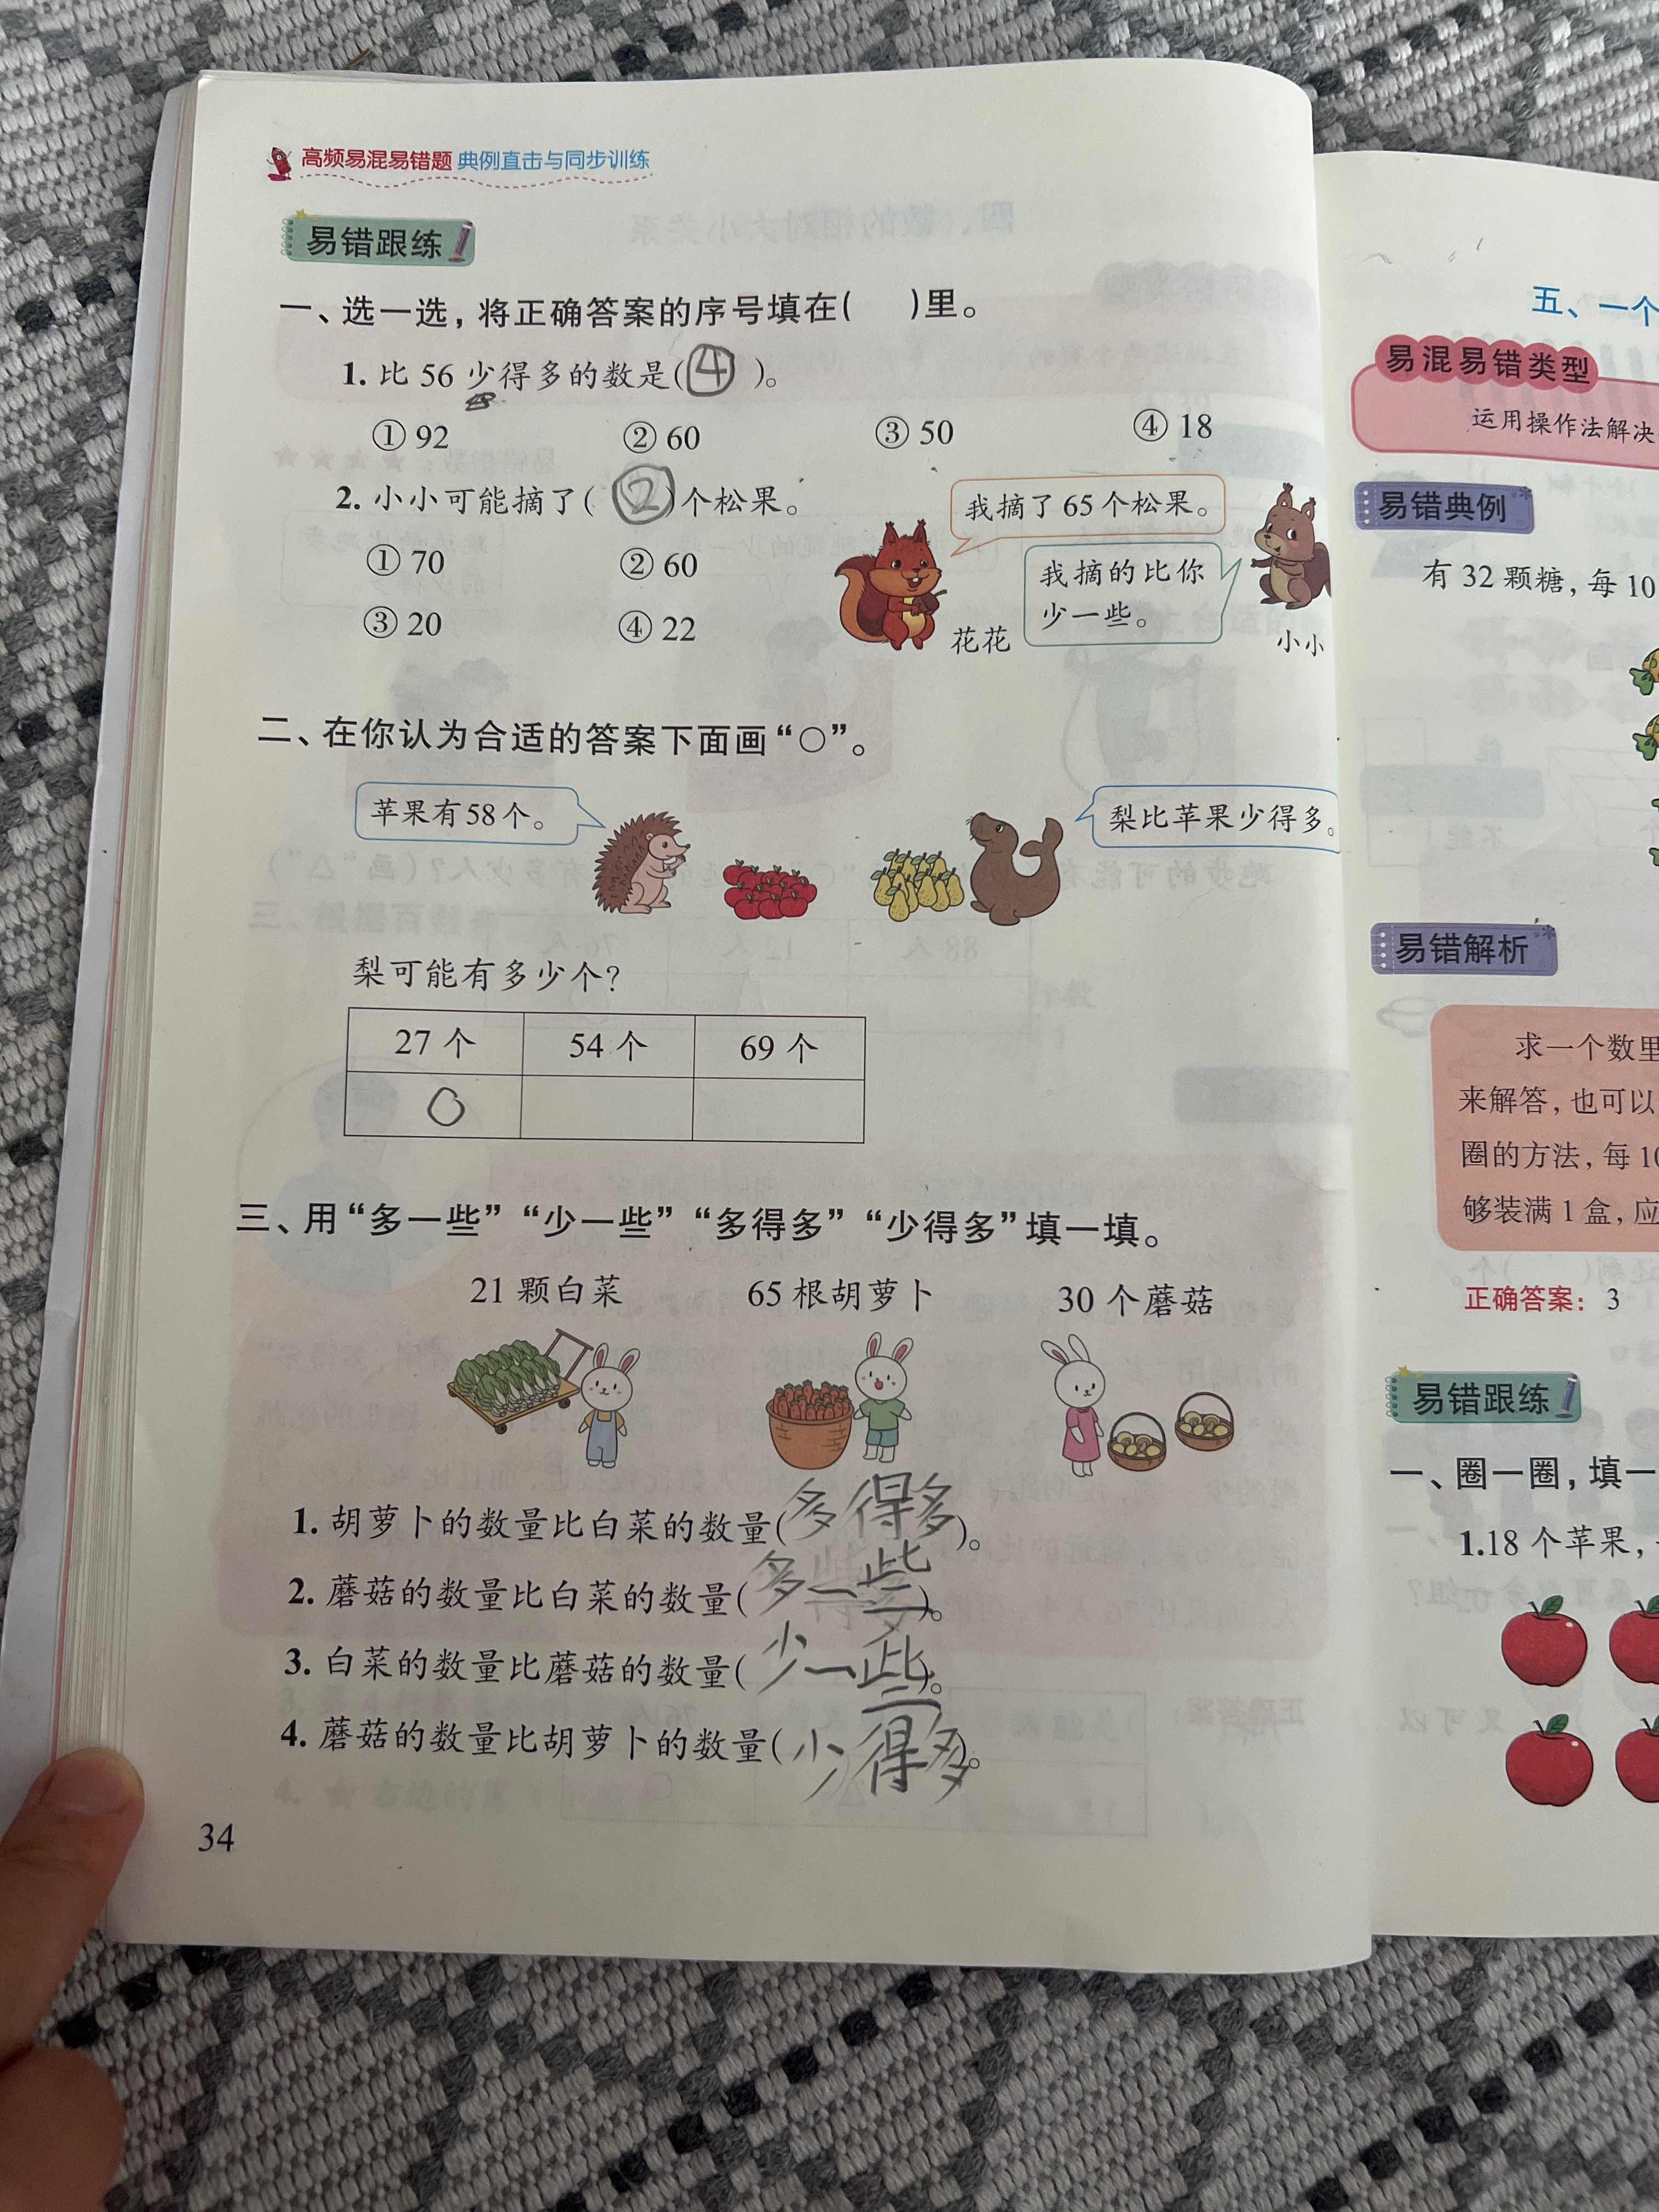 高频易混易错题 典例直击与同步训练
易错跟练
一、选一选，将正确答案的序号填在( )里。
1. 比 56 少得多的数是(④)。
① 92 ② 60 ③ 50 ④ 18
2. 小小可能摘了(②)个松果。
① 70 ② 60
③ 20 ④ 22
我摘了 65 个松果。
我摘的比你
少一些。
花花
小小
二、在你认为合适的答案下面画“○”。
苹果有58个。
梨比苹果少得多。
梨可能有多少个?
27 个 54 个 69 个
○
三、用“多一些”“少一些”“多得多”“少得多”填一填。
21 颗白菜 65 根胡萝卜 30 个蘑菇
1. 胡萝卜的数量比白菜的数量(多得多)。
2. 蘑菇的数量比白菜的数量(多一些)。
3. 白菜的数量比蘑菇的数量(少一些)。
4. 蘑菇的数量比胡萝卜的数量(少得多)。
34
五、一个
易混易错类型
运用操作法解决
易错典例
有 32 颗糖，每 10
易错解析
求一个数里
来解答，也可以
圈的方法，每 10
够装满 1 盒，应
正确答案：3
易错跟练
一、圈一圈，填一
1.18 个苹果，